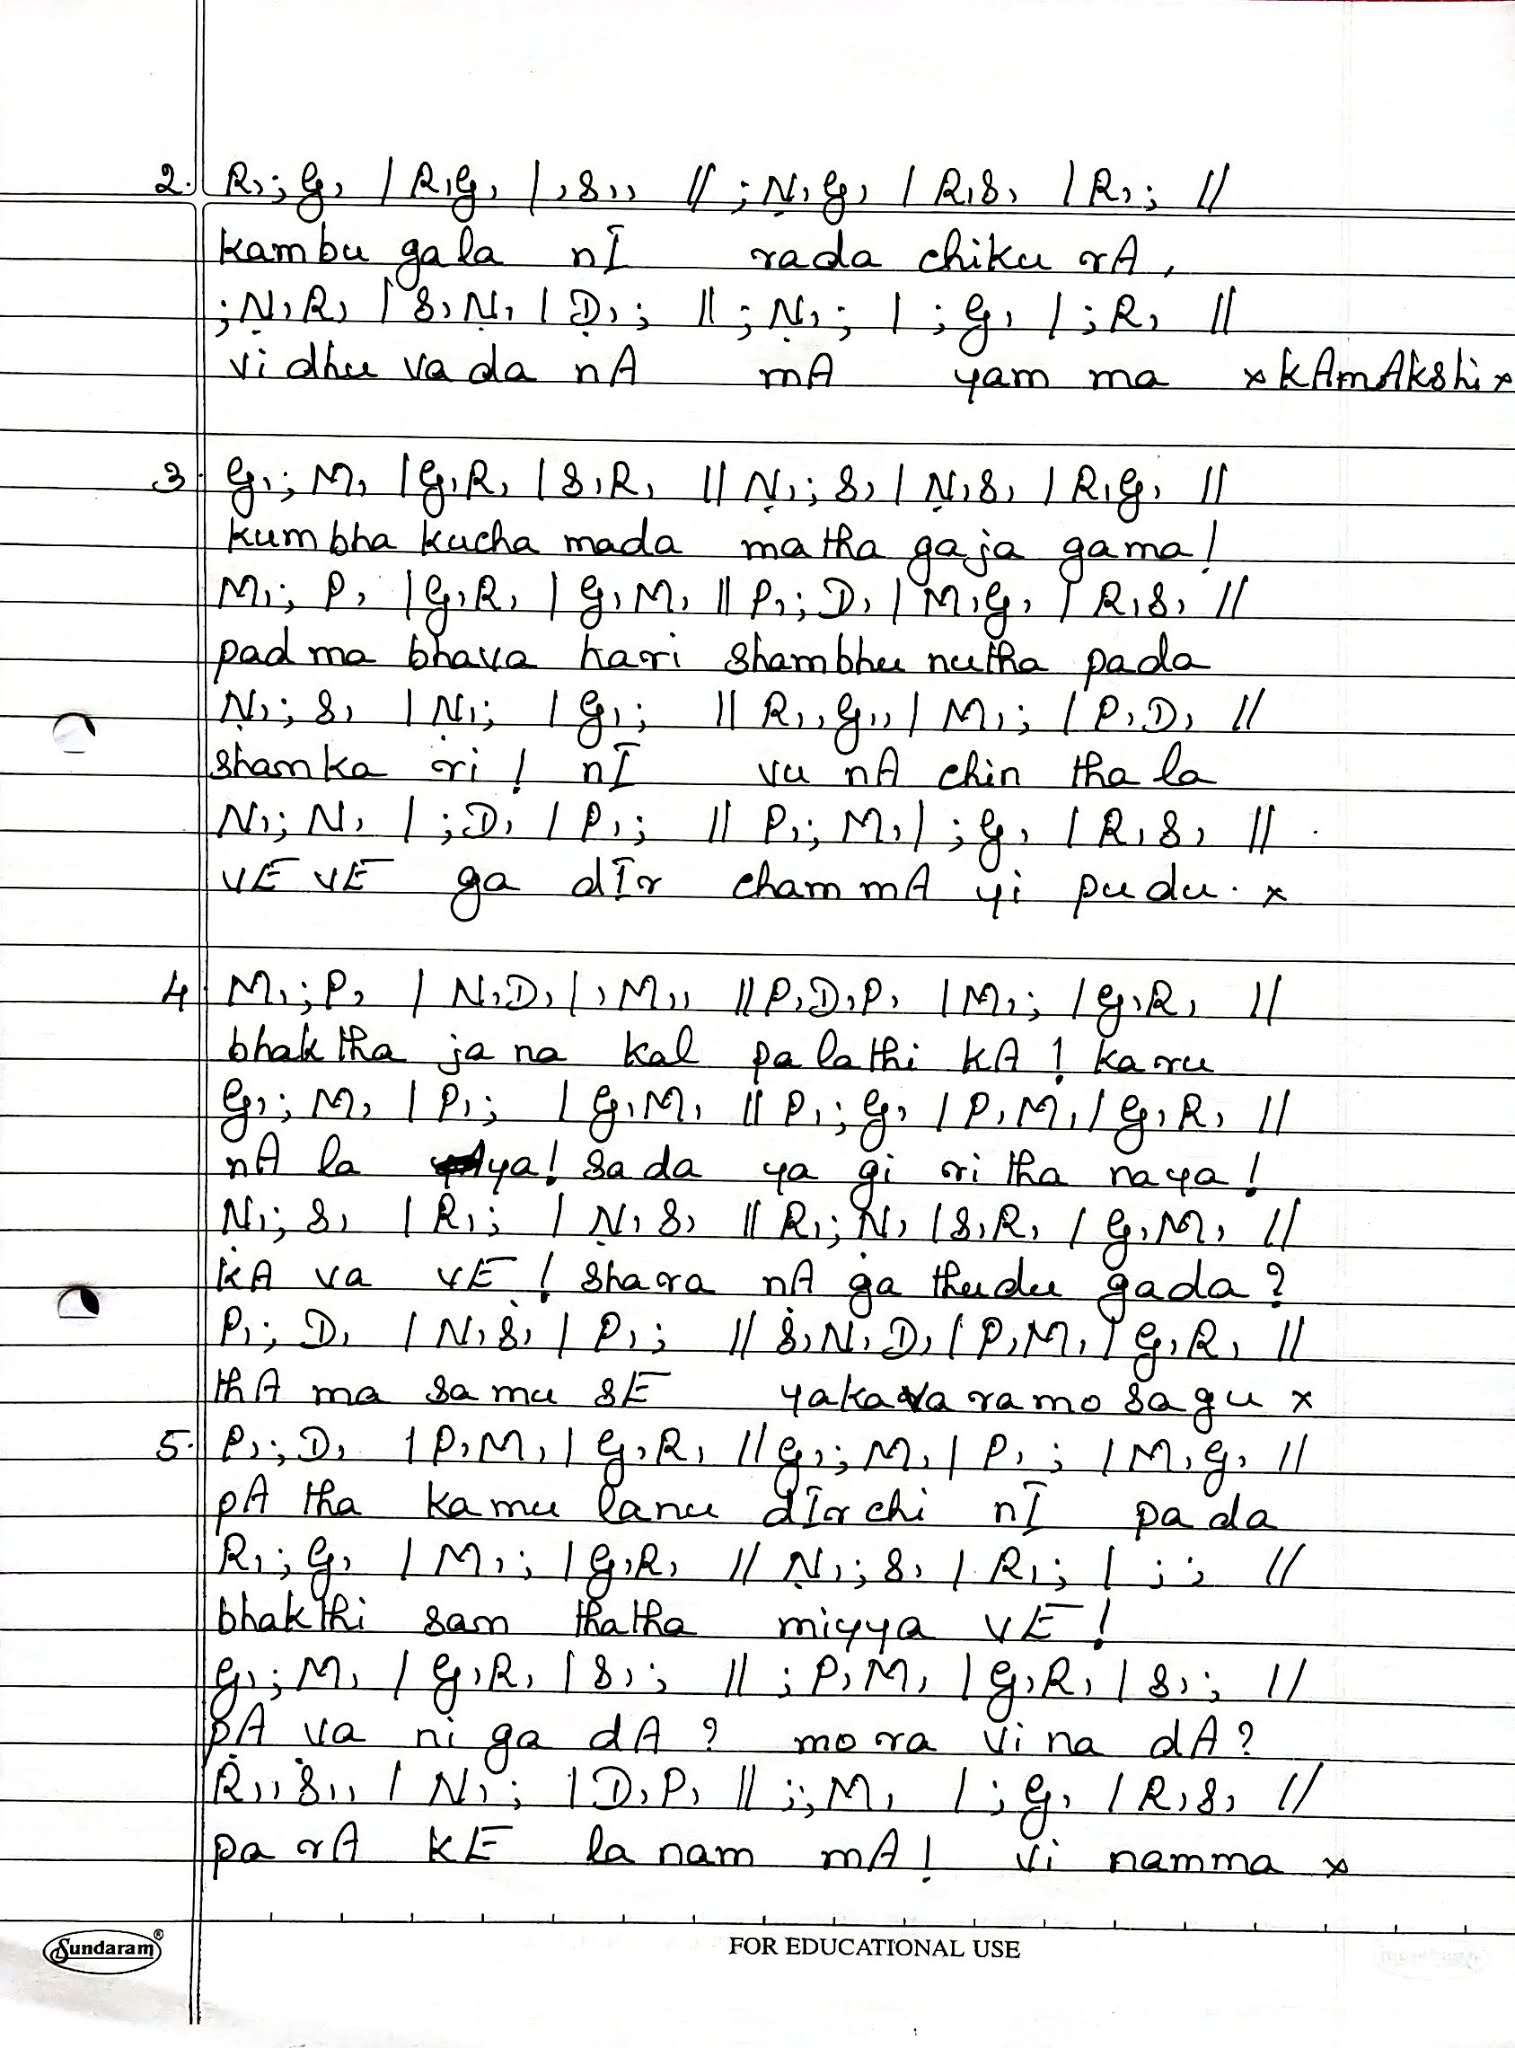 2. R,; G, | R,G, | ,S,, || ; Ṇ,G, | R,S, | R,; ||
kambu gala nI rada chiku rA,
; Ṇ,R, | S,Ṇ, | Ḍ,; || ; Ṇ,; | ; G, | ; R, ||
vidhu vada nA mA yam ma x kAmAkshi x
3. G,; M, | G,R, | S,R, || Ṇ,; S, | Ṇ,S, | R,G, ||
kumbha kucha mada matha gaja gama!
M,; P, | G,R, | G,M, || P,; D, | M,G, | R,S, ||
padma bhava hari shambhu nutha pada
Ṇ,; S, | Ṇ,; | G,; || R,,G,, | M,; | P,D, ||
shamka ri! nI vu nA chin tha la
N,; N, | ; D, | P,; || P,; M, | ; G, | R,S, ||
vE vE ga dIr cham mA yi pudu. x
4. M,; P, | N,D, | ,M,, || P,D,P, | M,; | G,R, ||
bhaktha ja na kal palathi kA! karu
G,; M, | P,; | G,M, || P,; G, | P,M, | G,R, ||
nA la ya! sada ya gi ri tha naya!
Ṇ,; S, | R,; | Ṇ,S, || R,; Ṇ, | S,R, | G,M, ||
kA va vE! shara nA ga thudu gada?
P,; D, | N,Ṡ, | P,; || Ṡ,N,D, | P,M, | G,R, ||
thA ma samu sE yakava ramo sagu x
5. P,; D, | P,M, | G,R, || G,; M, | P,; | M,G, ||
pA tha kamu lanu dIrchi nI pada
R,; G, | M,; | G,R, || Ṇ,; S, | R,; | ; ; ||
bhakthi san thatha miyya vE!
G,; M, | G,R, | S,; || ; P,M, | G,R, | S,; ||
pA va ni ga dA? mora vina dA?
Ṙ,,Ṡ,, | N,; | D,P, || ;; M, | ; G, | R,S, ||
pa rA kE la nam mA! vi namma x
Sundaram®
FOR EDUCATIONAL USE